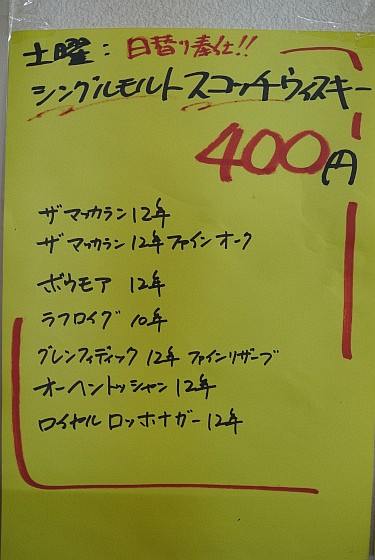 土曜：日替り奉仕!!
シングルモルトスコッチウィスキー
400円
ザマッカラン12年
ザマッカラン12年ファインオーク
ボウモア 12年
ラフロイグ 10年
グレンフィディック 12年 ファインリザーブ
オーヘントッシャン12年
ロイヤルロッホナガー12年